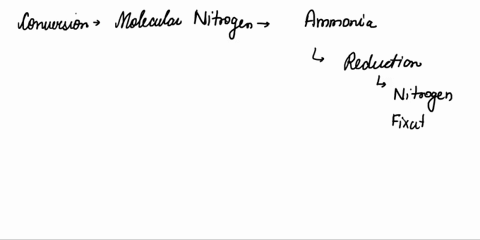 Conversion → Molecular Nitrogen → Ammonia
↳ Reduction
↳ Nitrogen
Fixat